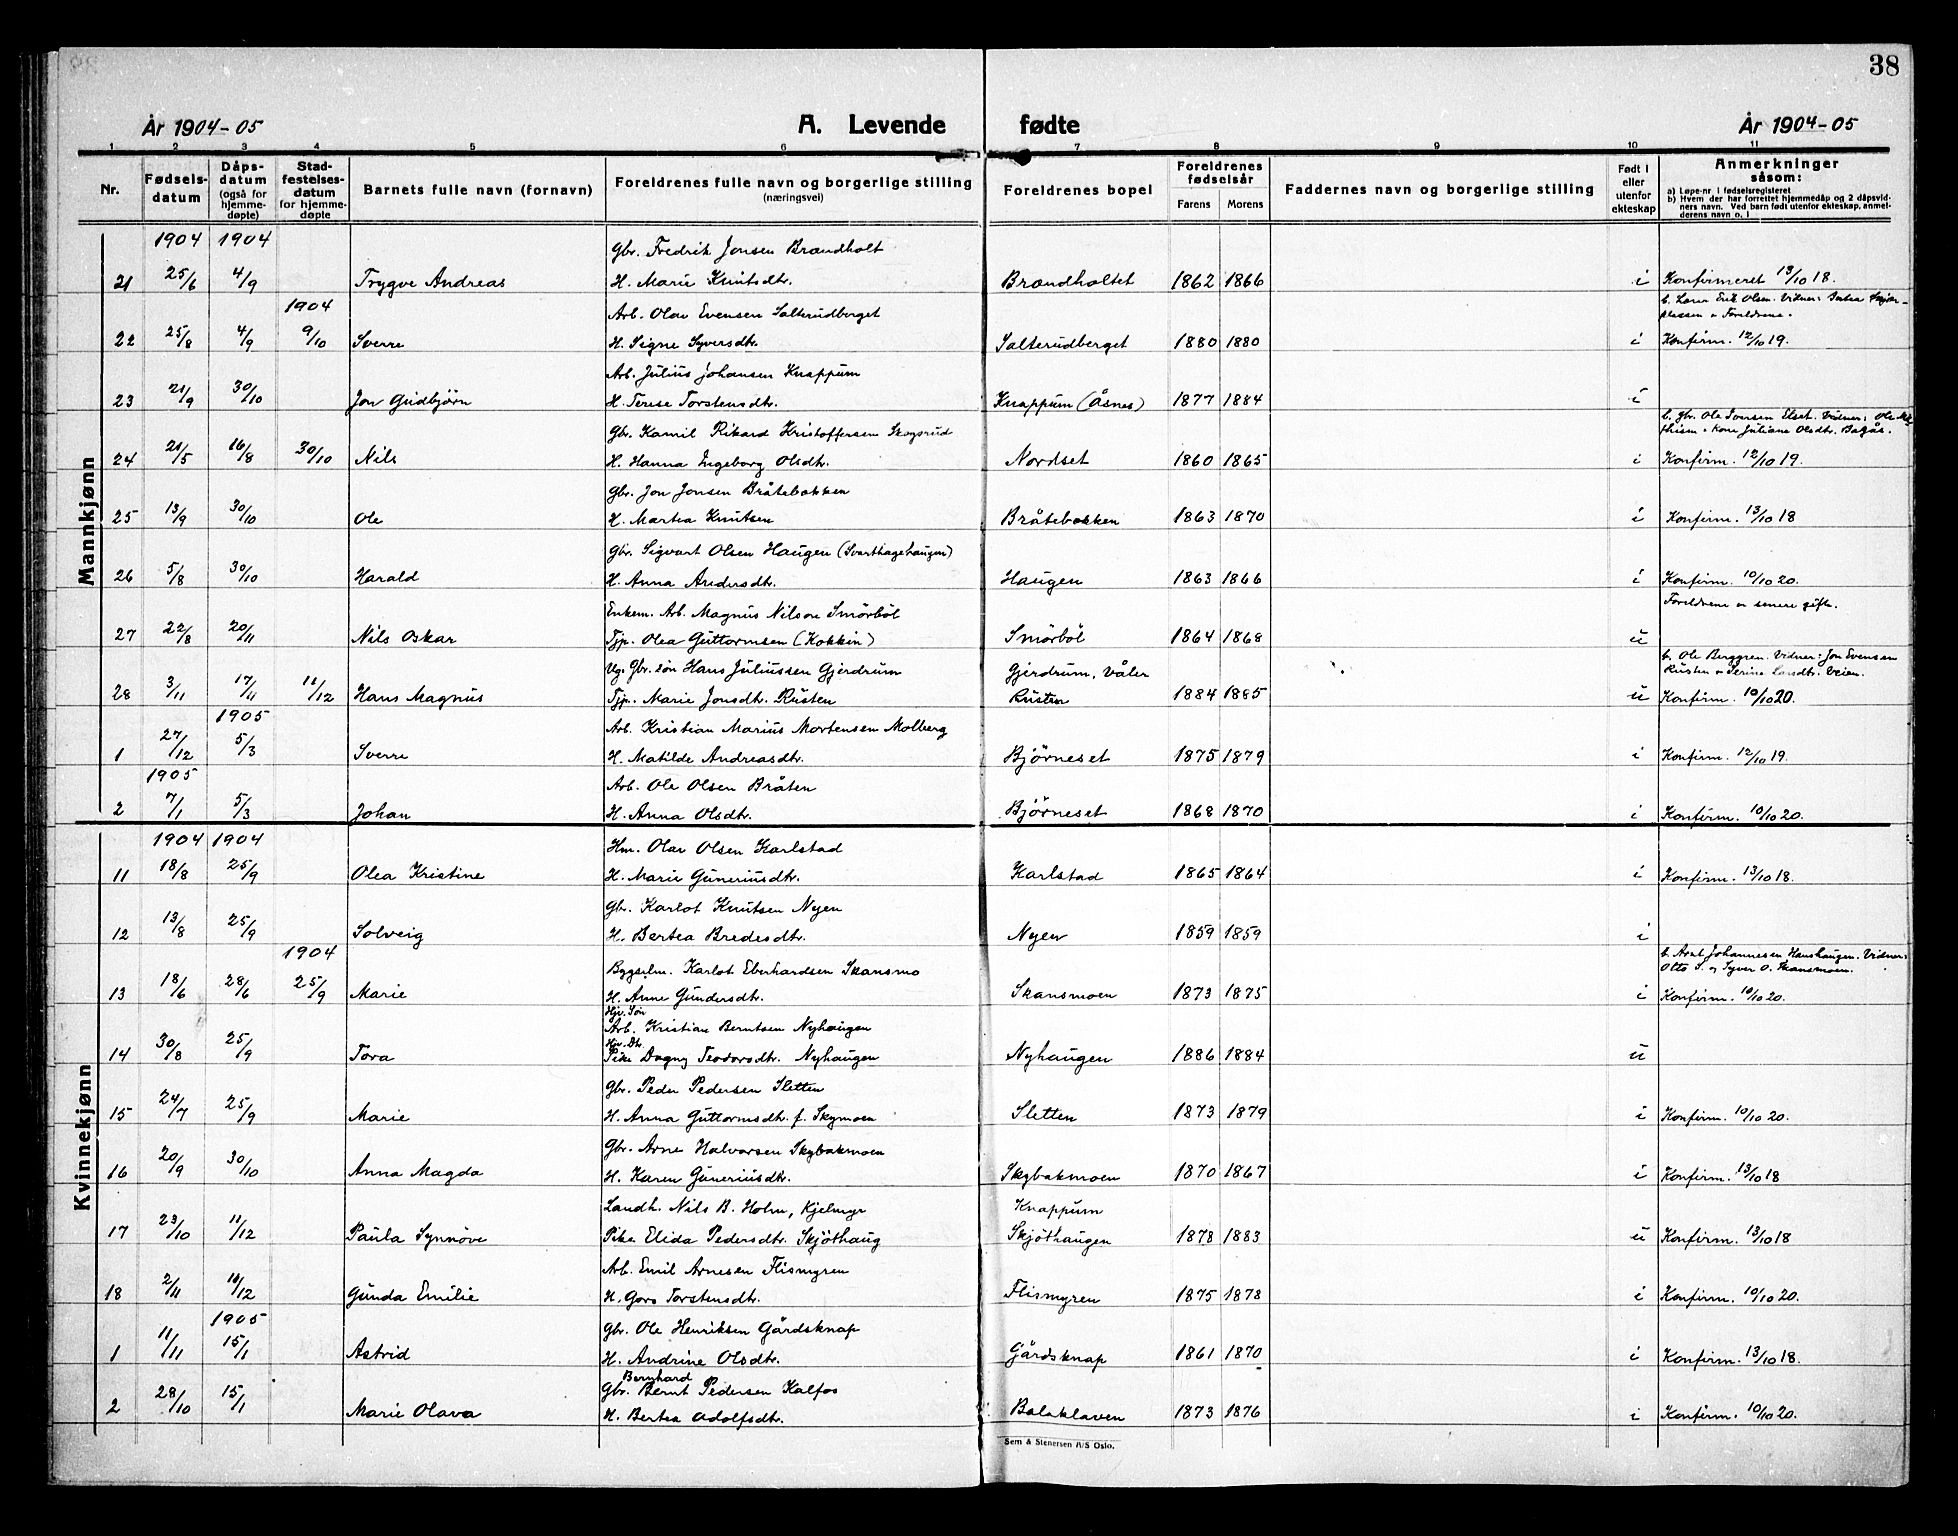 38
År 1904-05 A. Levende fødte År 1904-05
1 2 3 4 5 6 7 8 9 10 11
Nr. Fødselsdatum Dåpsdatum (også for hjemmedøpte) Stadfestelsesdatum for hjemmedøpte Barnets fulle navn (fornavn) Foreldrenes fulle navn og borgerlige stilling (næringsvei) Foreldrenes bopel Foreldrenes fødselsår Farens Morens Faddernes navn og borgerlige stilling Født i eller utenfor ekteskap Anmerkninger såsom:
a) Løpe-nr. i fødselsregisteret
b) Hvem der har forrettet hjemmedåp og 2 dåpsvidners navn. Ved barn født utenfor ekteskap, anmelderens navn o. l
Mannkjønn
1904 1904 Gbr. Fredrik Jonsen Brændholt
21 25/6 4/9 Trygve Andreas H. Marie Knutsdtr. Brændholtet 1862 1866 i Konfirmeret 13/10 18.
1904 Arb. Olav Evensen Salterudberget b. Lærer Erik Olsen. Vidner:
Foreldrene.
22 25/8 4/9 9/10 Sverre H. Signe Syversdtr. Salterudberget 1880 1880 i Konfirm. 12/10 19.
Arb. Julius Johansen Knappum
23 21/9 30/10 Jon Gudbjørn H. Terese Torstensdtr. Knappum (Åsnes) 1877 1884 i
Gbr. Kamil Rikard Kristoffersen Skogsrud b. gbr. Ole Jonsen Elset. Vidner: Ole
kone Juliane Olsdtr.
24 21/5 16/8 30/10 Nils H. Hanna Ingeborg Olsdtr. Nordset 1860 1865 i Konfirm. 12/10 19.
Gbr. Jon Jonsen Bråtebækken
25 13/9 30/10 Ole H. Martea Knutsen Bråtebækken 1863 1870 i Konfirm. 13/10 18
Gbr. Sigvart Olsen Haugen (Svarthagehaugen)
26 5/8 30/10 Harald H. Anna Andersdtr. Haugen 1863 1866 i Konfirm. 10/10 20.
Enkem. Arb. Magnus Nilson Smörböl Foreldrene er senere gifte.
27 22/8 20/11 Nils Oskar Tjp. Olea Guttormsen (Kokkin) Smörböl 1864 1868 u
Ug. Gbr. sön Hans Juliussen Gjerdrum Gjerdrum, Våler b. Ole Berggren. Vidner: Jon Evensen
Rusten
28 3/11 17/11 11/12 Hans Magnus Tjp. Marie Jonsdtr. Rusten Rusten 1884 1885 u Konfirm. 10/10 20.
1905 Arb. Kristian Marius Mortensen Molberg
1 27/12 5/3 Sverre H. Matilde Andreasdtr. Bjørneset 1875 1879 i Konfirm. 12/10 19.
1905 Arb. Ole Olsen Bråten
2 7/1 5/3 Johan H. Anna Olsdtr. Bjørneset 1868 1870 i Konfirm. 10/10 20.
Kvinnekjønn
1904 1904 Hm. Olav Olsen Karlstad
11 18/8 25/9 Olea Kristine H. Marie Guneriusdtr. Karlstad 1865 1864 i Konfirm. 13/10 18.
Gbr. Karlot Knutsen Nyen
12 13/8 25/9 Solveig H. Bertea Bredesdtr. Nyen 1859 1859 i
1904 Bygselm. Karlot Eberhardsen Skansmo b. Arnt Johannesen Hanshaugen. Vidner:
Otto S. og Syver O. Skansmoen.
13 18/6 28/6 25/9 Marie H. Anne Gundersdtr. Skansmoen 1873 1875 i Konfirm. 10/10 20.
Hjv. Sön
Arb. Kristian Berntsen Nyhaugen
Hjv. Dtr.
14 30/8 25/9 Tora Pike Dagny Teodorsdtr. Nyhaugen Nyhaugen 1886 1884 u
Gbr. Peder Pedersen Sletten
15 24/7 25/9 Marie H. Anna Guttormsdtr. f. Skymoen Sletten 1873 1879 i Konfirm. 10/10 20.
Gbr. Arne Halvorsen Skybakmoen
16 20/9 30/10 Anna Magda H. Karen Guneriusdtr. Skybakmoen 1870 1867 i Konfirm. 13/10 18
Landh. Nils B. Holm, Kjelmyr Knappum
17 23/10 11/12 Paula Synnöve Pike Elida Pedersdtr. Skjöthaug Skjöthaugen 1878 1883 u Konfirm. 13/10 18
Arb. Emil Arnesen Flismyren
18 2/11 11/12 Gunda Emilie H. Goro Torstensdtr. Flismyren 1875 1878 i Konfirm. 10/10 20.
1905 Gbr. Ole Henriksen Gårdsknap
1 11/11 15/1 Astrid H. Andrine Olsdtr. Gårdsknap 1861 1870 i Konfirm. 13/10 18.
Bernhard
Gbr. Bernt Pedersen Kalfos
2 28/10 15/1 Marie Olava H. Bertea Adolfsdtr. Balaklaven 1873 1876 i Konfirm. 10/10 20.
Sem & Stenersen A/S Oslo.